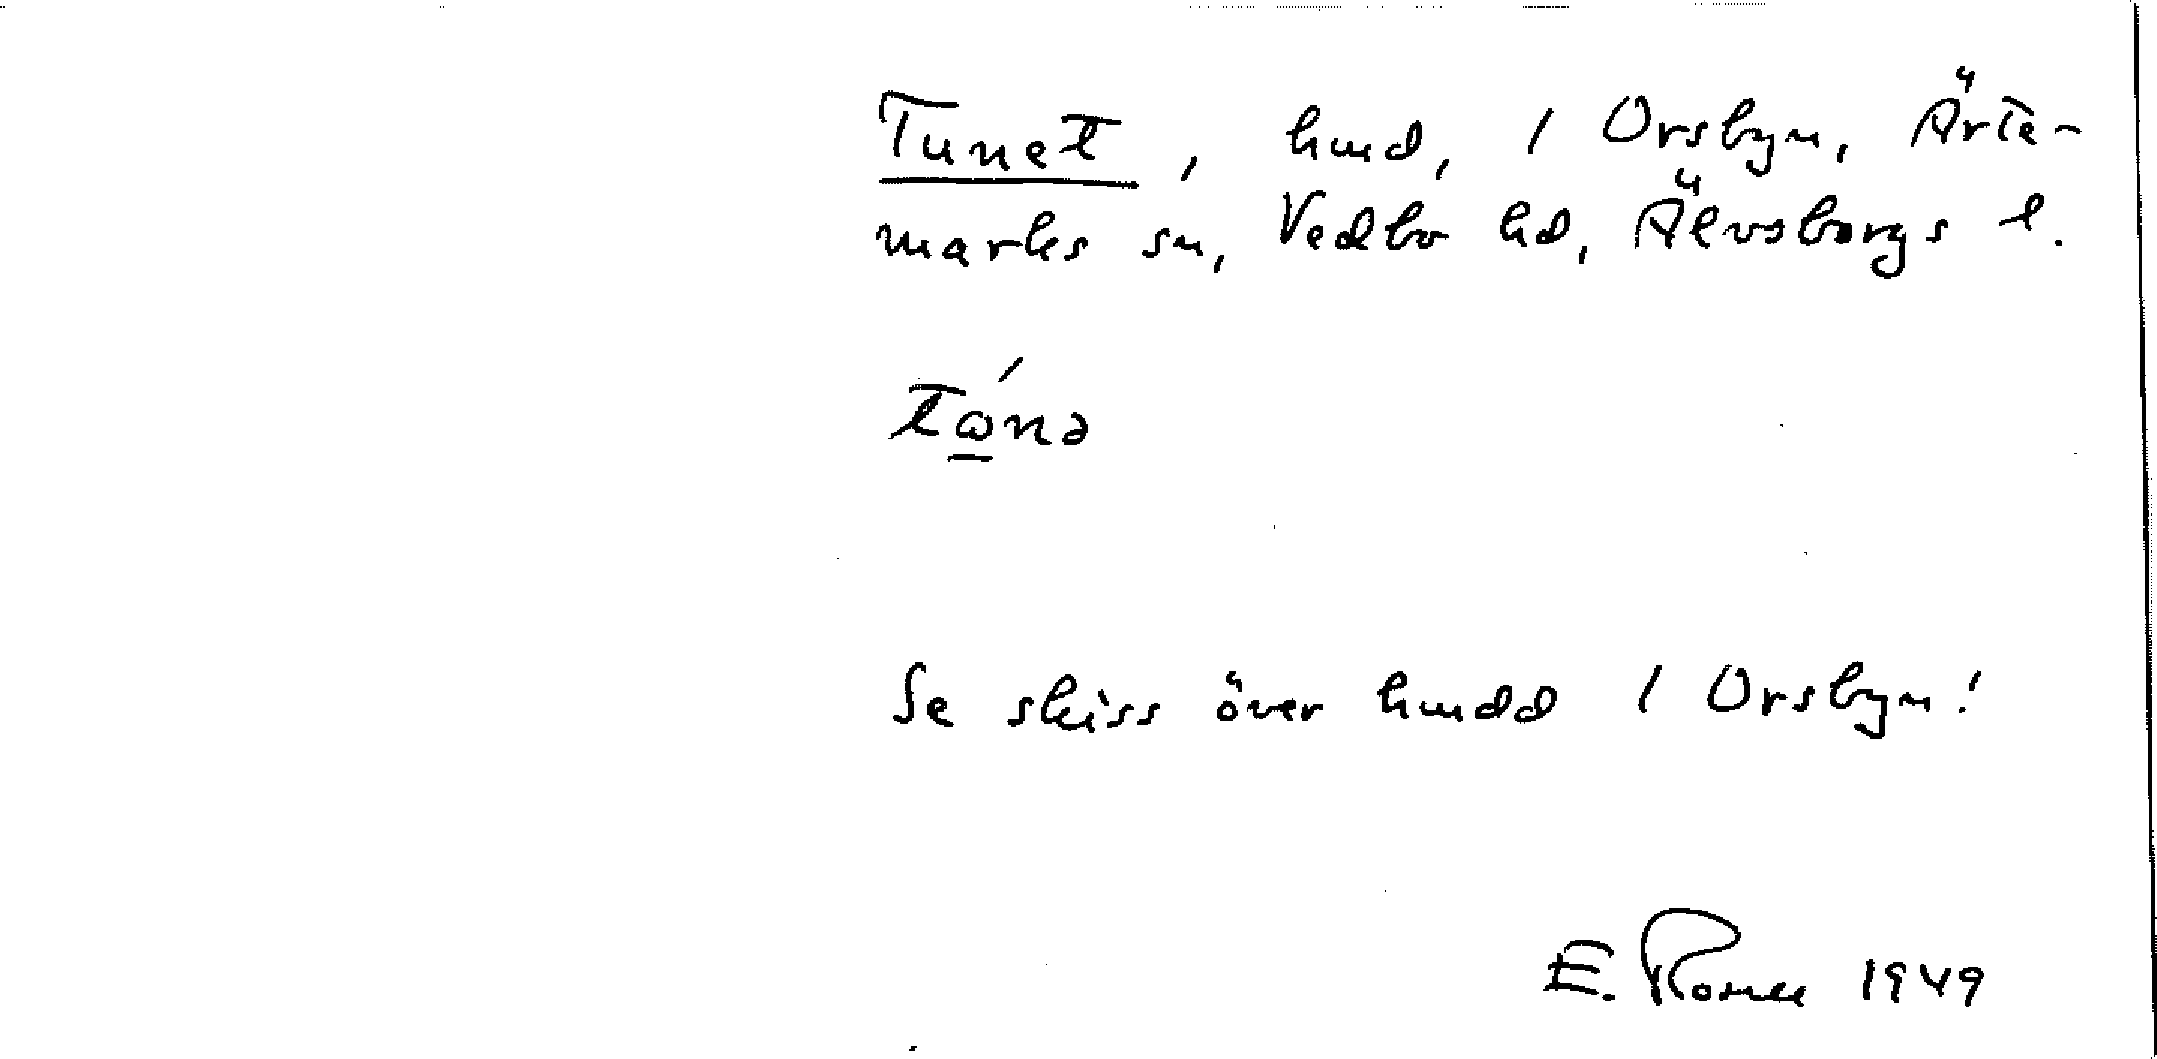 Tunet, hmd, i Orsbyn, Ärte-
marks sn, Vedbo hd, Älvsborgs l.
Se skiss över hmdd i Orsbyn!
E. 1949